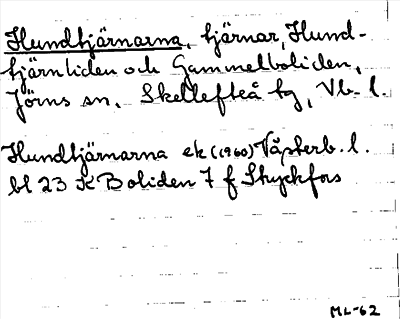 Hundtjärnarna, tjärnar, Hund-
tjärnliden och Gammelboliden,
Jörns sn, Skellefteå tg, Vb. l.
Hundtjärnarna ek (1960) Västerb. l.
bl 23 K Boliden 7 f Stryckfors
ML-62